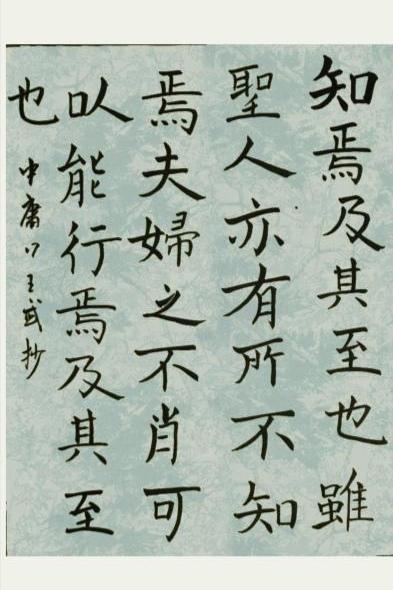 知焉及其至也雖
聖人亦有所不知
焉夫婦之不肖可
㕥能行焉及其至
也
中庸 王 抄